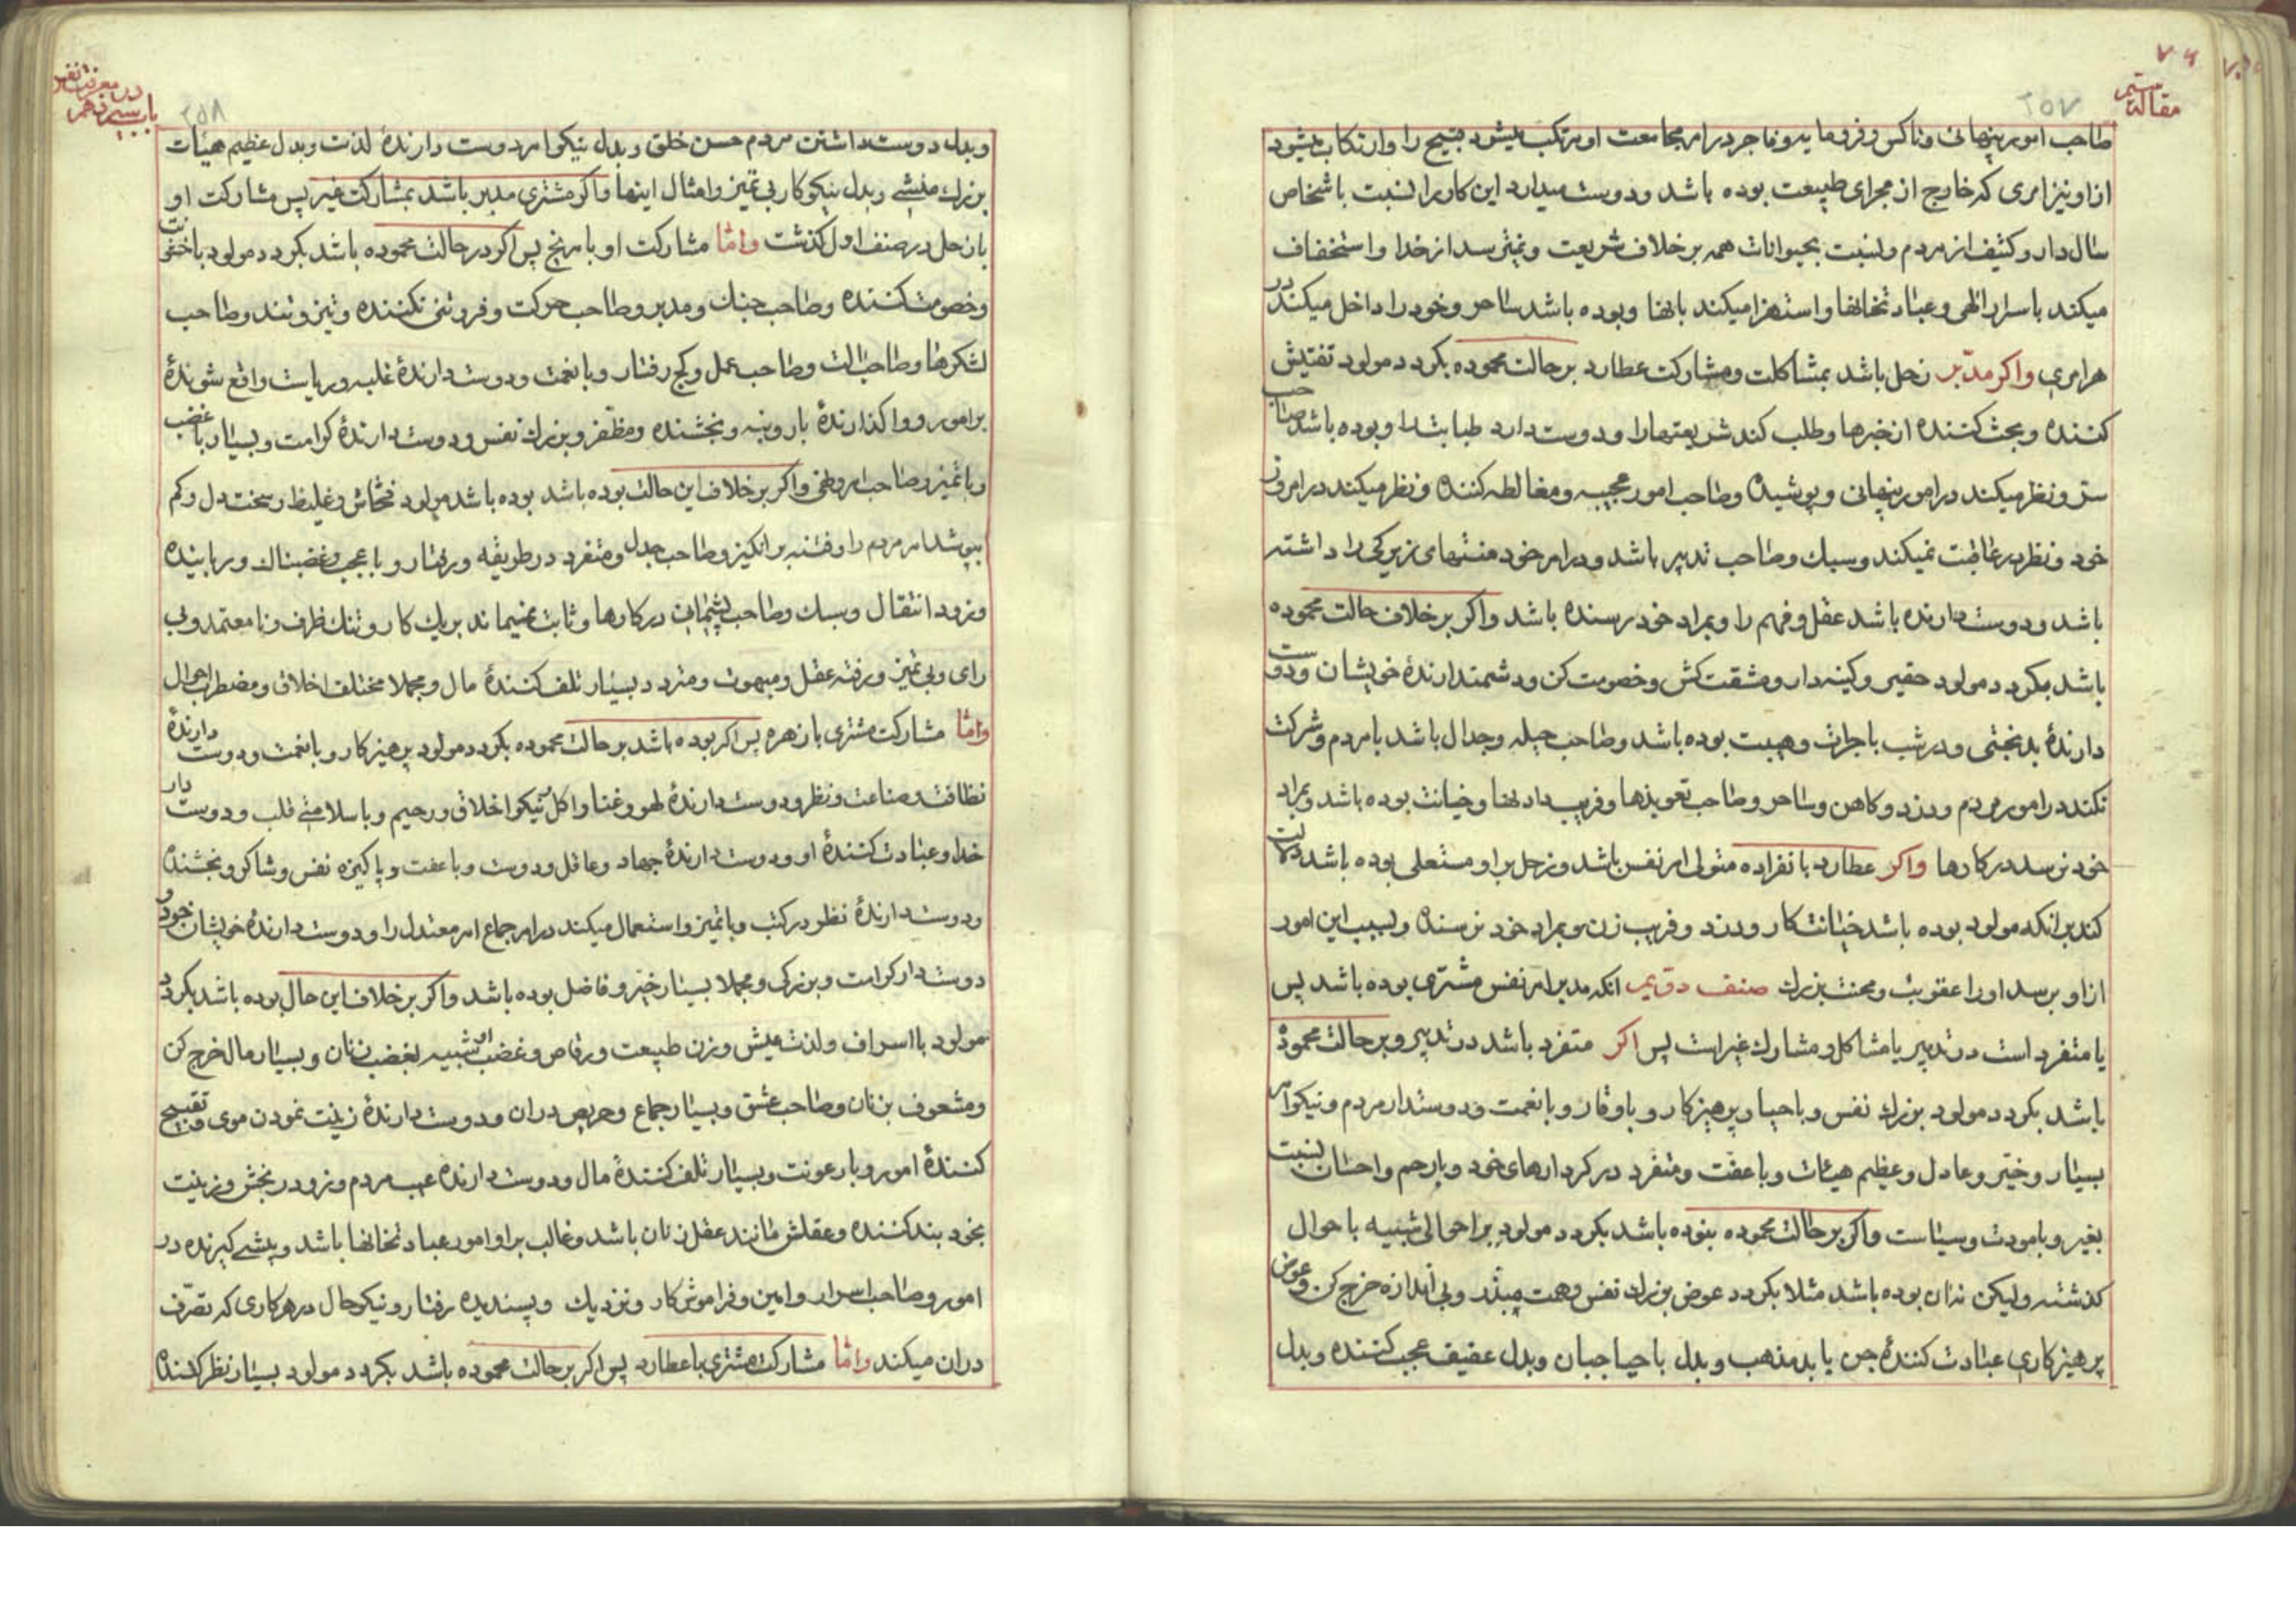 مقالت سیم
٢٥٧
صاحب امور پنهانی وناکس و فرومایه و فاجر در امر مجامعت او مرتکب میشود قبیح را وارتکاب میشود
ازاو نیز امری که خارج از مجرای طبیعت بوده باشد ودوست میدارد این کار را نسبت باشخاص
سال دار و کثیف از مردم ونسبت بحیوانات همه برخلاف شریعت ونمیترسد از خدا واستخفاف
میکند باسرار الهی وعبادتخانها واستهزا میکند بانها وبوده باشد ساحر وخود را داخل میکند در
هر امری واکر مدبّر زحل باشد بمشاکلت ومشارکت عطارد برحالت محموده بکردد مولود تفتیش
کننده وبحث کننده از خبرها وطلب کند شریعتها را ودوست دارد طبابت را وبوده باشد صاحب
ستر ونظر میکند در امور پنهانی وپوشیده وصاحب امور عجیبه ومغالطه کننده ونظر میکند در امر روز
خود ونظر در عاقبت نمیکند وسبک وصاحب تدبیر باشد ودر امر خود منتهای زیرکی را داشته
باشد ودوست دارنده باشد عقل وفهم را وبمراد خود رسنده باشد واکر برخلاف حالت محموده
باشد بکردد مولود حقیر وکینه دار ومشقت کش وخصومت کن ودشمن دارندۀ خویشان ودوست
دارندۀ بدبختی ودر شب باجرات وهیبت بوده باشد وصاحب حیله وجدال باشد بامردم وشرکت
نکند در امور مردم ودزد وکاهن وساحر وصاحب تعویذها وفریب دادنها وخیانت بوده باشد وبمراد
خود نرسد در کارها واکر عطارد بانفراده متولی امر نفس باشد وزحل براو مستعلی بوده باشد دلالت
کند برانکه مولود بوده باشد خیانتکار ودزد وفریب زن وبمراد خود نرسنده وبسبب این امور
ازاو برسد اورا عقوبت ومحنت بزرک صنف دویم انکه مدبر امر نفس مشتری بوده باشد پس
یا متفرد است در تدبیر یا مشاکل ومشارک غیر است پس اکر متفرد باشد در تدبیر وبر حالت محموده
باشد بکردد مولود بزرک نفس وباحیا وپرهیزکار وباوقار وبانعمت ودوستدار مردم ونیکوامر
بسیار وخیّر وعادل وعظیم هیئات وباعفت ومتفرد در کردارهای خود وبارحم واحسان نسبت
بغیر وبامودت وسیاست واکر برحالت محموده نبوده باشد بکردد مولود بر احوالی شبیه باحوال
کذشته ولیکن نه ان بوده باشد مثلا بکردد عوض بزرک نفس وهمت مبذّر وبی اندازه خرج کن وعوض
پرهیزکاری عبادت کنندۀ جن یا بدمذهب وبدل باحیا جبان وبدل عفیف عجب کننده وبدل
در معرفت نفس
باب سیزدهم
٢٥٨
وبدل دوست داشتن مردم حسن خلق وبدل نیکوامر دوست دارندۀ لذت وبدل عظیم هیئات
بزرک منشی وبدل نیکوکار بی تمیز وامثال اینها واکر مشتری مدبر باشد بمشارکت غیر پس مشارکت او
بازحل در صنف اول کذشت وامّا مشارکت او بامریخ پس اکر در حالت محموده باشد بکردد مولود باخشونت
وخصومت کننده وصاحب جنک ومدبر وصاحب حرکت وفروتنی نکننده وتیز وتند وصاحب
لشکرها وصاحب الت وصاحب عمل وکج رفتار وبانعمت ودوست دارندۀ غلبه وریاست واقع شوندۀ
برامور وواکذارندۀ باروبنه وبخشنده ومظفّر وبزرک نفس ودوست دارندۀ کرامت وبسیار باغضب
وباتمیز وصاحب امر وظفر واکر برخلاف این حالت بوده باشد بوده باشد مولود فحّاش وغلیظ وسخت دل وکم
بپوشد امر مردم را وفتنه برانکیز وصاحب جدل ومتفرد در طریقه ورفتار وباعجب وغضبناک ورباینده
وزود انتقال وسبک وصاحب پشیمانی در کارها وثابت نمیماند بریک کار وتنک ظرف ونامعتمد وبی
رای وبی تمیز ورفته عقل ومبهوت ومتردد بسیار تلف کنندۀ مال ومجملا مختلف اخلاق ومضطرب احوال
وامّا مشارکت مشتری بازهره پس اکر بوده باشد برحالت محموده بکردد مولود پرهیزکار وبانعمت ودوست دارندۀ
نظافت وصناعت ونظر ودوست دارندۀ لهو وغنا واکل ونیکواخلاق ورحیم وباسلامتی قلب ودوست دار
خدا وعبادت کنندۀ او ودوست دارندۀ جهاد وعاقل ودوست وباعفت وپاکیزه نفس وشاکر وبخشنده
ودوست دارندۀ نظر در کتب وباتمیز واستعمال میکند در امر جماع امر معتدل را ودوست دارندۀ خویشان خود و
دوست دار کرامت وبزرکی ومجملا بسیار خیّر وفاضل بوده باشد واکر برخلاف این حال بوده باشد بکردد
مولود بااسراف ولذت عیش وزن طبیعت ورقاص وغضب او شبیه بغضب زنان وبسیار مال خرج کن
ومشعوف بزنان وصاحب عشق وبسیار جماع وحریص دران ودوست دارندۀ زینت نمودن موی وتقبیح
کنندۀ امور وبارعونت وبسیار تلف کنندۀ مال ودوست دارنده عیب مردم وزود رنجش وزینت
بخود بند کننده وعقلش مانند عقل زنان باشد وغالب براو امور عبادتخانها باشد وپیشی کیرنده در
امور وصاحب اسرار وامین وفراموش کار ونزدیک وپسندیده رفتار ونیکوحال در هر کاری که تصرّف
دران میکند وامّا مشارکت مشتری باعطارد پس اکر برحالت محموده باشد بکردد مولود بسیار نظر کننده